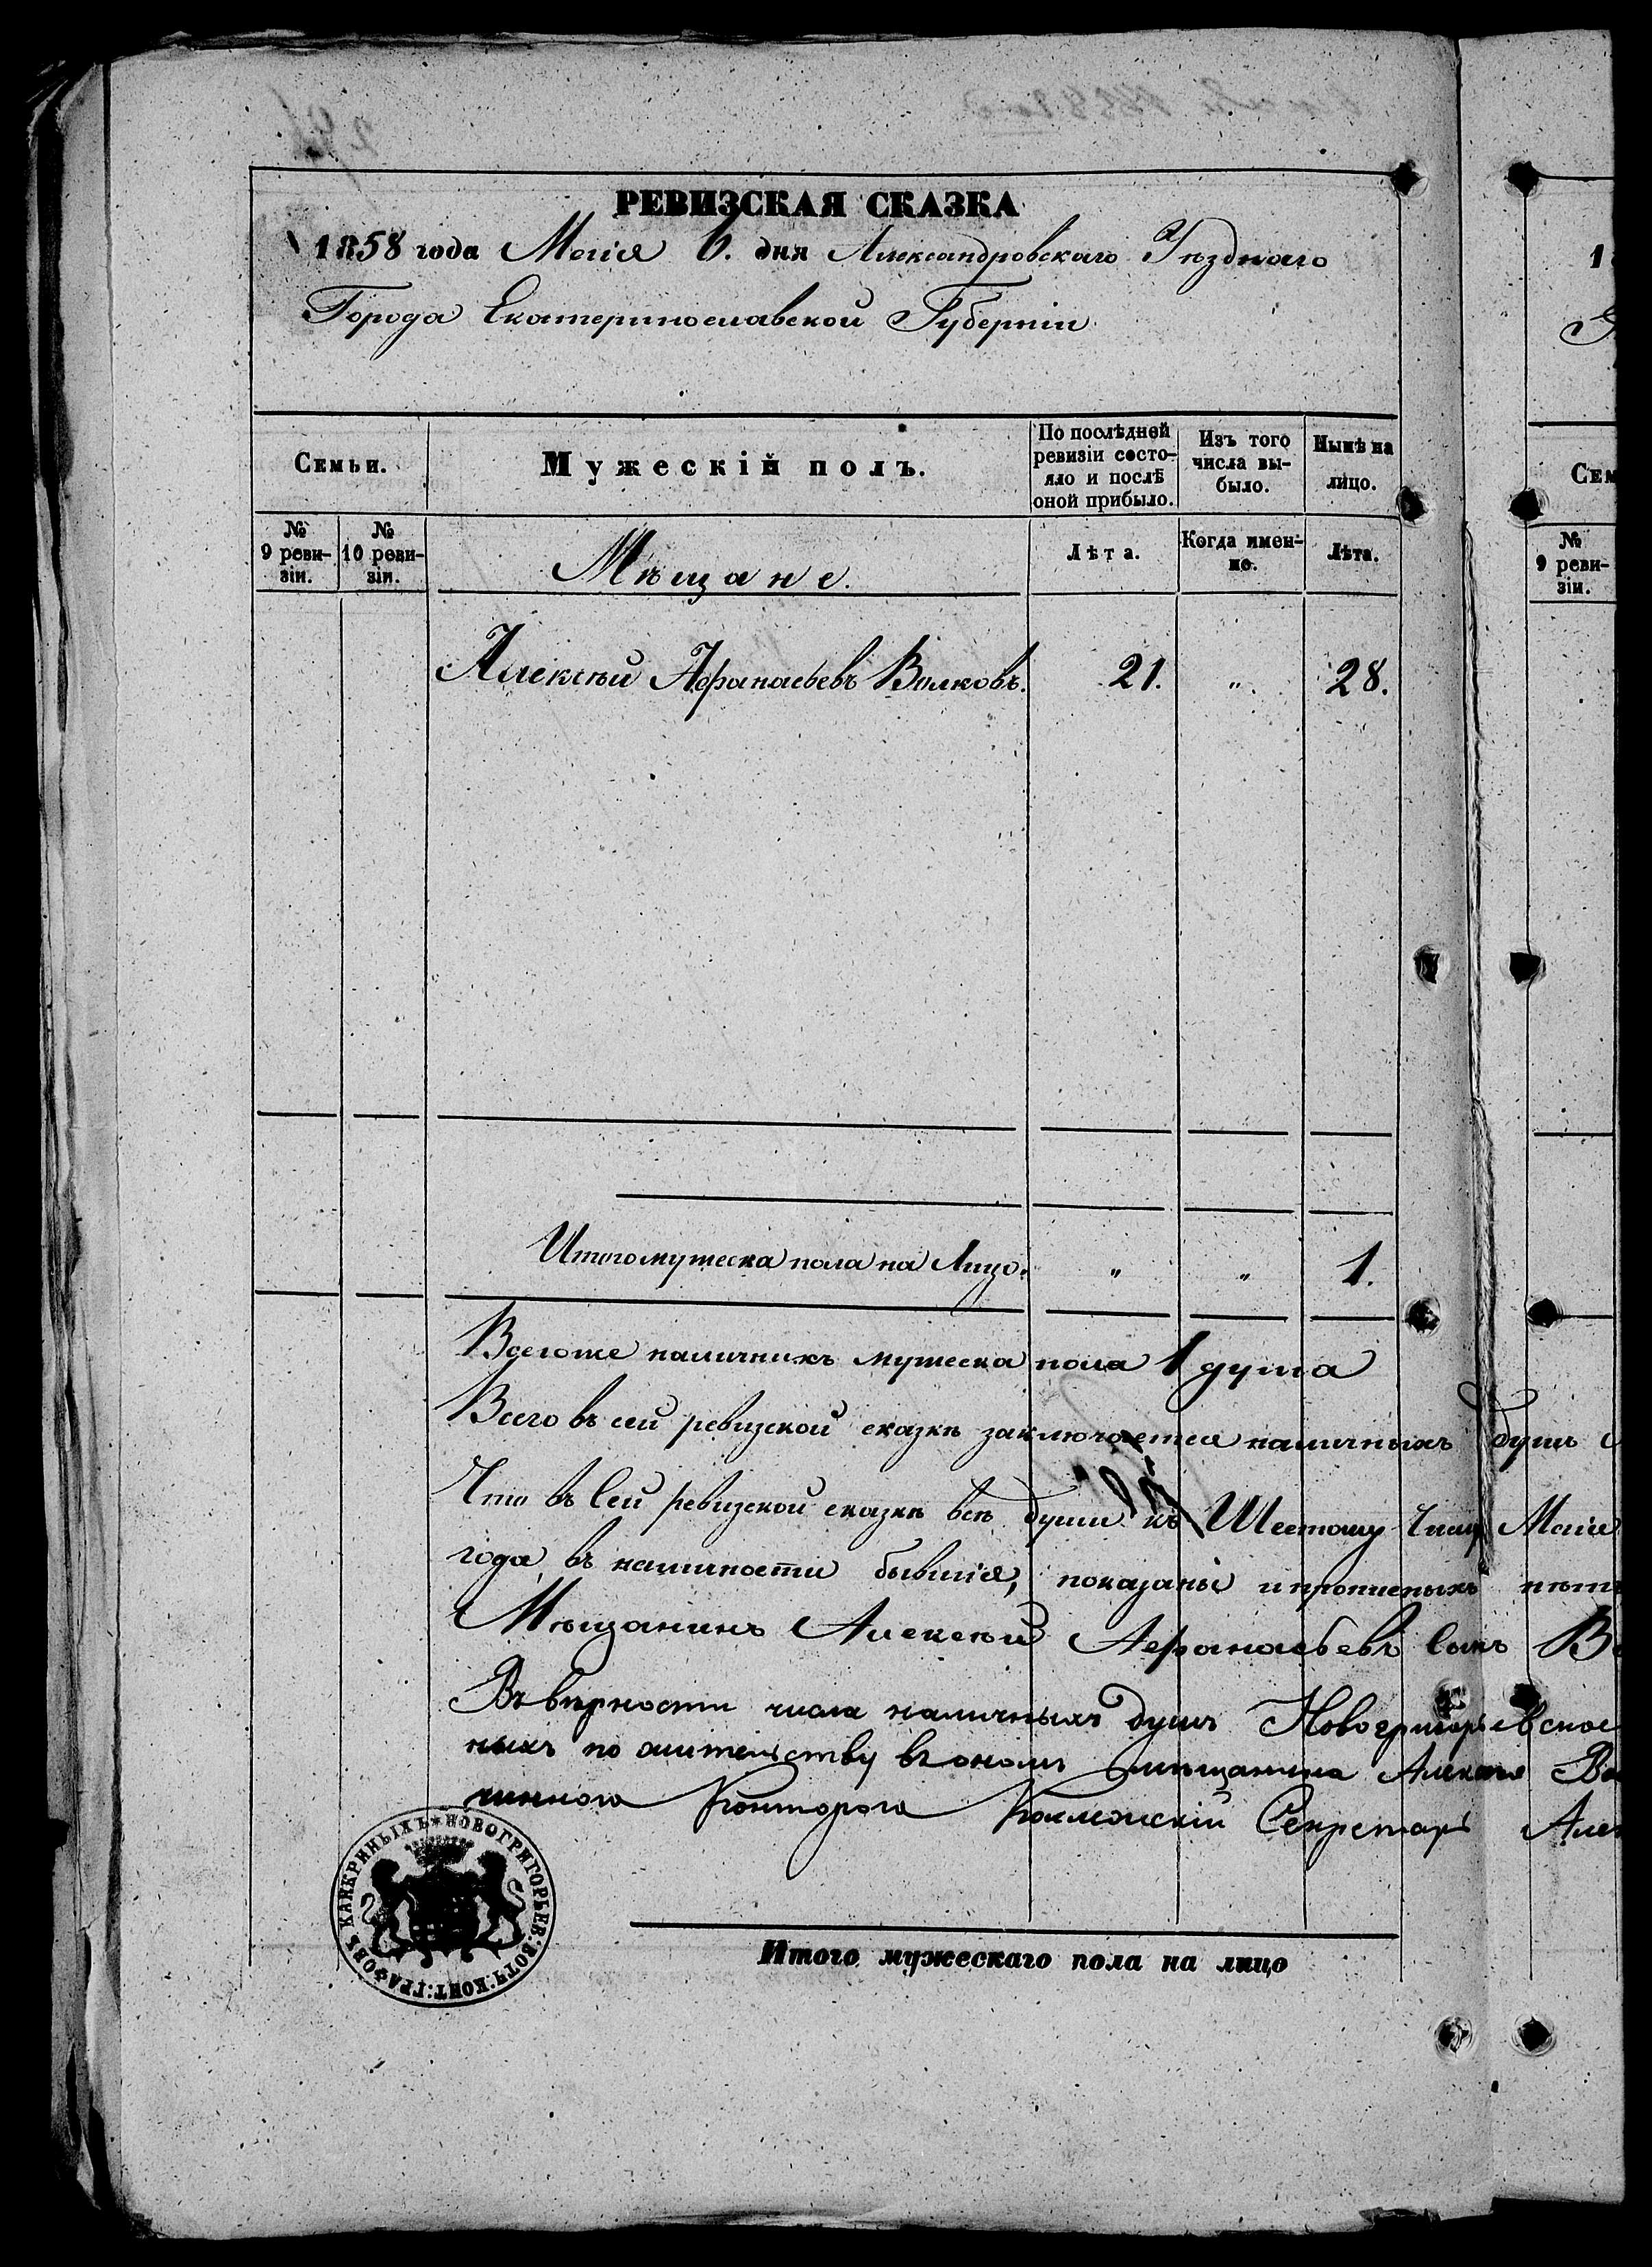 РЕВИЗСКАЯ СКАЗКА
1858 года Маія 6. дня Александровскаго Уѣзднаго
Города Екатеринославской Губерніи
Семьи.
Мужескій полъ.
По послѣдней ревизіи состо-
яло и послѣ оной прибыло.
Изъ того числа вы-
было.
Нынѣ на лицо.
№ 9 реви-
зіи.
№ 10 реви-
зіи.
Мѣщане.
Лѣта.
Когда имен-
но.
Лѣта.
Алексѣй Афанасьевъ Волковъ. 21. " 28.
Итого мужеска пола на Лицо. " " 1.
Всегоже наличныхъ мужеска пола 1 душа
Всего въ сей ревизской сказкѣ заключается наличныхъ душъ
Что въ Сей ревизской сказкѣ всѣ души къ Шестому Числу Маія
года, въ наличности бывшія, показаны и прописныхъ нѣтъ
Мѣщанинъ Алексѣй Афанасьевъ Сынъ
Въ вѣрности числа наличныхъ душъ Новогригорьевское
ныхъ по жительству въ ономъ мѣщанина Алексѣя
чинного Конторого Секретарь
КАНКРИНЫХЪ * НОВОГРИГОРЬЕВ: ВОТЧ: КОНТ: ГРАФОВЪ
Итого мужескаго пола на лицо
1
Сем
№ 9 реви-
зіи.